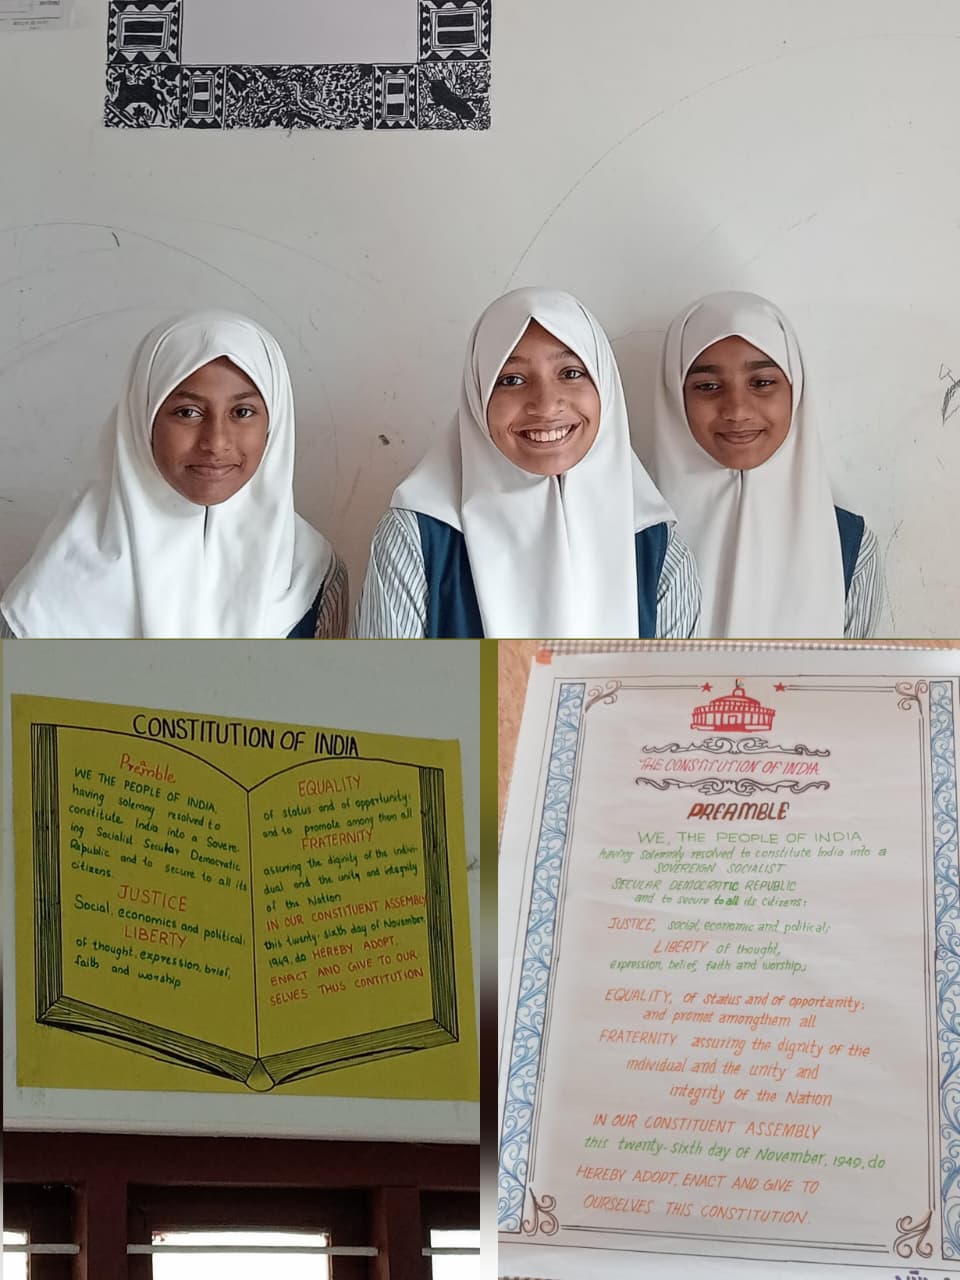 CONSTITUTION OF INDIA
Preamble
WE THE PEOPLE OF INDIA,
having solemny resolved to
constitute India into a Sovere-
ing Socialist Secular Democratic
Republic and to secure to all its
citizens.
JUSTICE
Social, economics and political;
LIBERTY
of thought, expression, brief,
faith and worship
EQUALITY
of status and of opportunity;
and to promote among them all
FRATERNITY
assuring the dignity of the indivi-
dual and the unity and integrity
of the Nation
IN OUR CONSTITUENT ASSEMBLY
this twenty-sixth day of November,
1949, do HEREBY ADOPT,
ENACT AND GIVE TO OUR-
SELVES THUS CONTITUTION
THE CONSTITUTION OF INDIA
PREAMBLE
WE, THE PEOPLE OF INDIA
having Solemnly resolved to constitute India into a
SOVEREIGN SOCIALIST
SECULAR DEMOCRATIC REPUBLIC
and to secure to all its citizens:
JUSTICE, social, economic and political;
LIBERTY of thought,
expression, belief, faith and worship;
EQUALITY, of status and of opportunity;
and promot amongthem all
FRATERNITY assuring the dignity of the
individual and the unity and
integrity of the Nation
IN OUR CONSTITUENT ASSEMBLY
this twenty-sixth day of November, 1949, do
HEREBY ADOPT, ENACT AND GIVE TO
OURSELVES THIS CONSTITUTION.